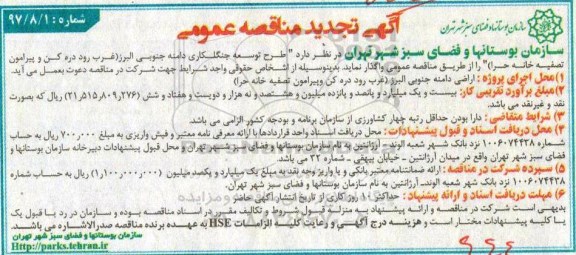 شماره : ۹۷/۸/۱
آگهی تجدید مناقصه عمومی
سازمان بوستانها و فضای سبز شهر تهران
سازمان بوستانها و فضای سبز شهر تهران در نظر دارد " طرح توسعه جنگلکاری دامنه جنوبی البرز(غرب رود دره کن و پیرامون
تصفیه خانه حرا" را از طریق مناقصه عمومی واگذار نماید. بدینوسیله از اشخاص حقوقی واجد شرایط جهت شرکت در مناقصه دعوت بعمل می آید.
۱) محل اجرای پروژه : اراضی دامنه جنوبی البرز (غرب رود دره کن وپیرامون تصفیه خانه حرا)
۲) مبلغ برآورد تقریبی کار: بیست و یک میلیارد و پانصد و پانزده میلیون و هشتصد و نه هزار و دویست و هفتاد و شش (۲۱,۵۱۵,۸۰۹,۲۷۶) ریال که بصورت
نقد و غیرنقد می باشد.
۳) شرایط متقاضی : دارا بودن حداقل رتبه چهار کشاورزی از سازمان برنامه و بودجه کشور الزامی می باشد.
۴) محل دریافت اسناد و قبول پیشنهادات : محل دریافت اسناد واحد قراردادها با ارائه معرفی نامه معتبر و فیش واریزی به مبلغ ۷۰۰,۰۰۰ ریال به حساب
شماره ۱۰۰۶۰۷۴۴۳۸ نزد بانک شهر شعبه الوند – آرژانتین به نام سازمان بوستانها و فضای سبز شهر تهران و محل قبول پیشنهادات دبیرخانه سازمان بوستانها و
فضای سبز شهر تهران واقع در میدان آرژانتین – خیابان بیهقی – شماره ۳۲ می باشد.
۵) سپرده شرکت در مناقصه : ارائه ضمانتنامه معتبر بانکی و یا واریز وجه نقد به مبلغ یک میلیارد و یکصد میلیون (۱,۱۰۰,۰۰۰,۰۰۰) ریال به حساب شماره
۱۰۰۶۰۷۴۴۳۸ نزد بانک شهر شعبه الوند- آرژانتین به نام سازمان بوستانها و فضای سبز شهر تهران.
۶) مهلت دریافت اسناد و ارائه پیشنهاد : حداکثر ۱۰ روز کاری از تاریخ انتشار آگهی
بدیهی است شرکت در مناقصه و ارائه پیشنهاد به منزله قبول شروط و تکالیف مقرر در اسناد مناقصه بوده و سازمان در رد یا قبول یک
یا کلیه پیشنهادات مختار است و هزینه درج آگهی و رعایت کلیه الزامات HSE به عهده برنده مناقصه صدرالاشاره می باشد.
سازمان بوستانها و فضای سبز شهر تهران
http://parks.tehran.ir